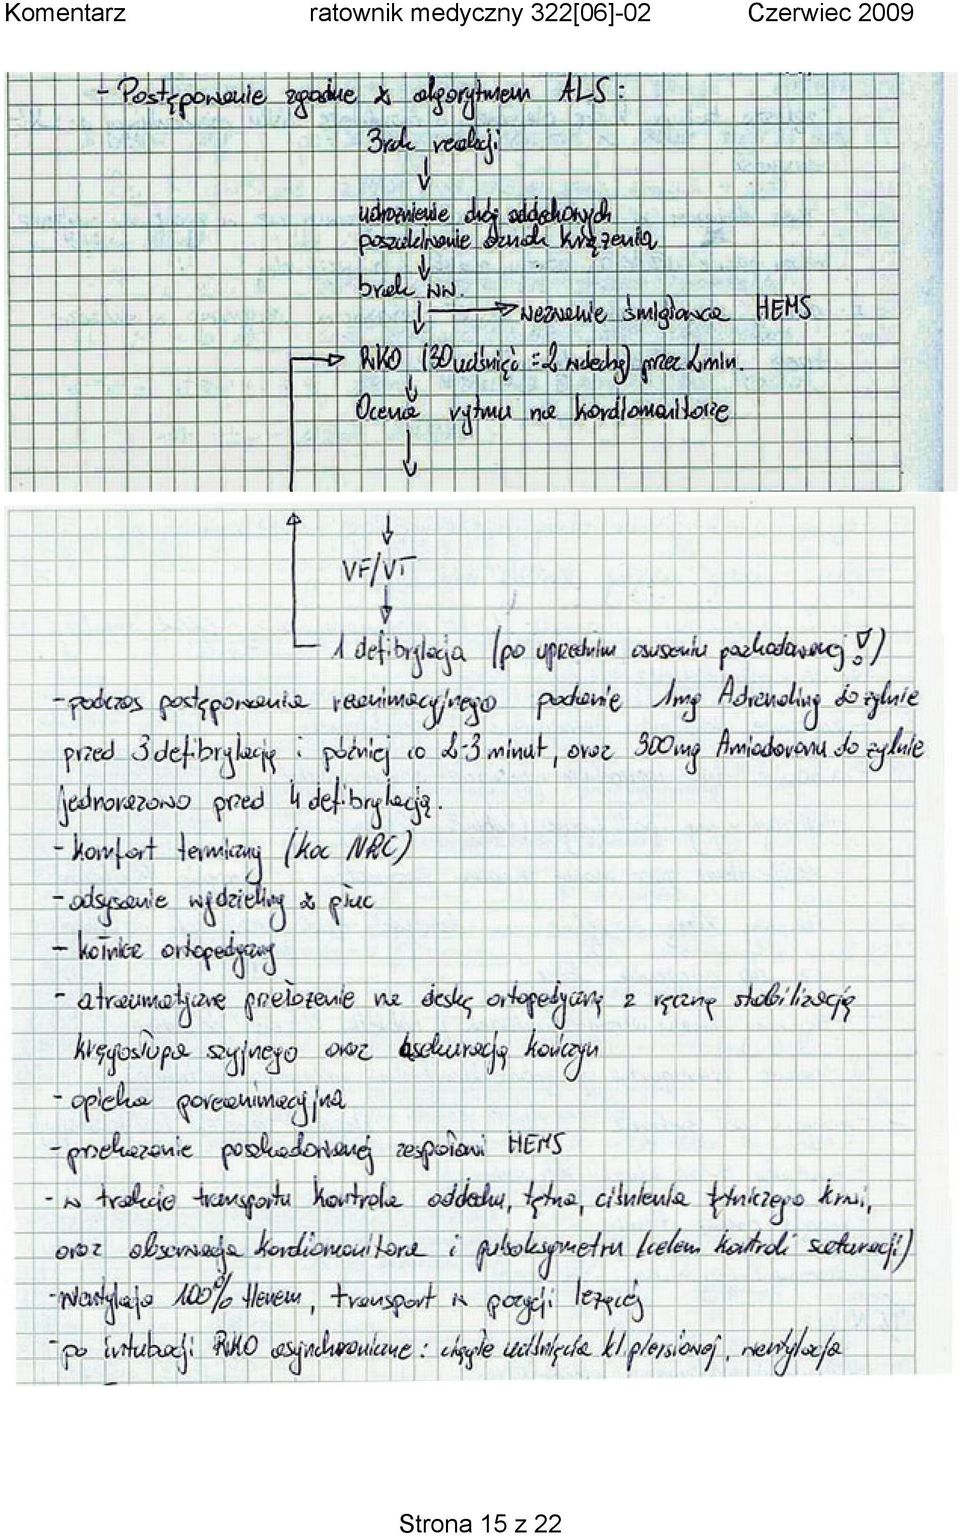 Komentarz ratownik medyczny 322[06]-02 Czerwiec 2009
- Postępowanie zgodne z algorytmem ALS:
Brak reakcji
udrożnienie dróg oddechowych
poszukiwanie oznak krążenia
brak NN.
Wezwanie śmigłowca HEMS
RKO (30 uciśnięć = 2 wdechy) przez 2 min.
Ocena rytmu na kardiomonitorze
VF/VT
1 defibrylacja (po uprzednim osuszeniu poszkodowanej!)
- podczas postępowania reanimacyjnego podanie 1mg Adrenaliny dożylnie
przed 3 defibrylacją i później co 2-3 minut, oraz 300mg Amiodaronu dożylnie
jednorazowo przed 4 defibrylacją.
- komfort termiczny (koc NRC)
- odsysanie wydzieliny z płuc
- kołnierz ortopedyczny
- atraumatyczne przełożenie na deskę ortopedyczną z ręczną stabilizacją
kręgosłupa szyjnego oraz asekuracją kończyn
- opieka poreanimacyjna
- przekazanie poszkodowanej zespołowi HEMS
- w trakcie transportu kontrola oddechu, tętna, ciśnienia tętniczego krwi,
oraz obserwacja kardiomonitora i pulsoksymetru (celem kontroli saturacji)
- Wentylacja 100% tlenem, transport w pozycji leżącej
- po intubacji RKO asynchroniczne: ciągłe uciśnięcia kl. piersiowej, wentylacja
Strona 15 z 22